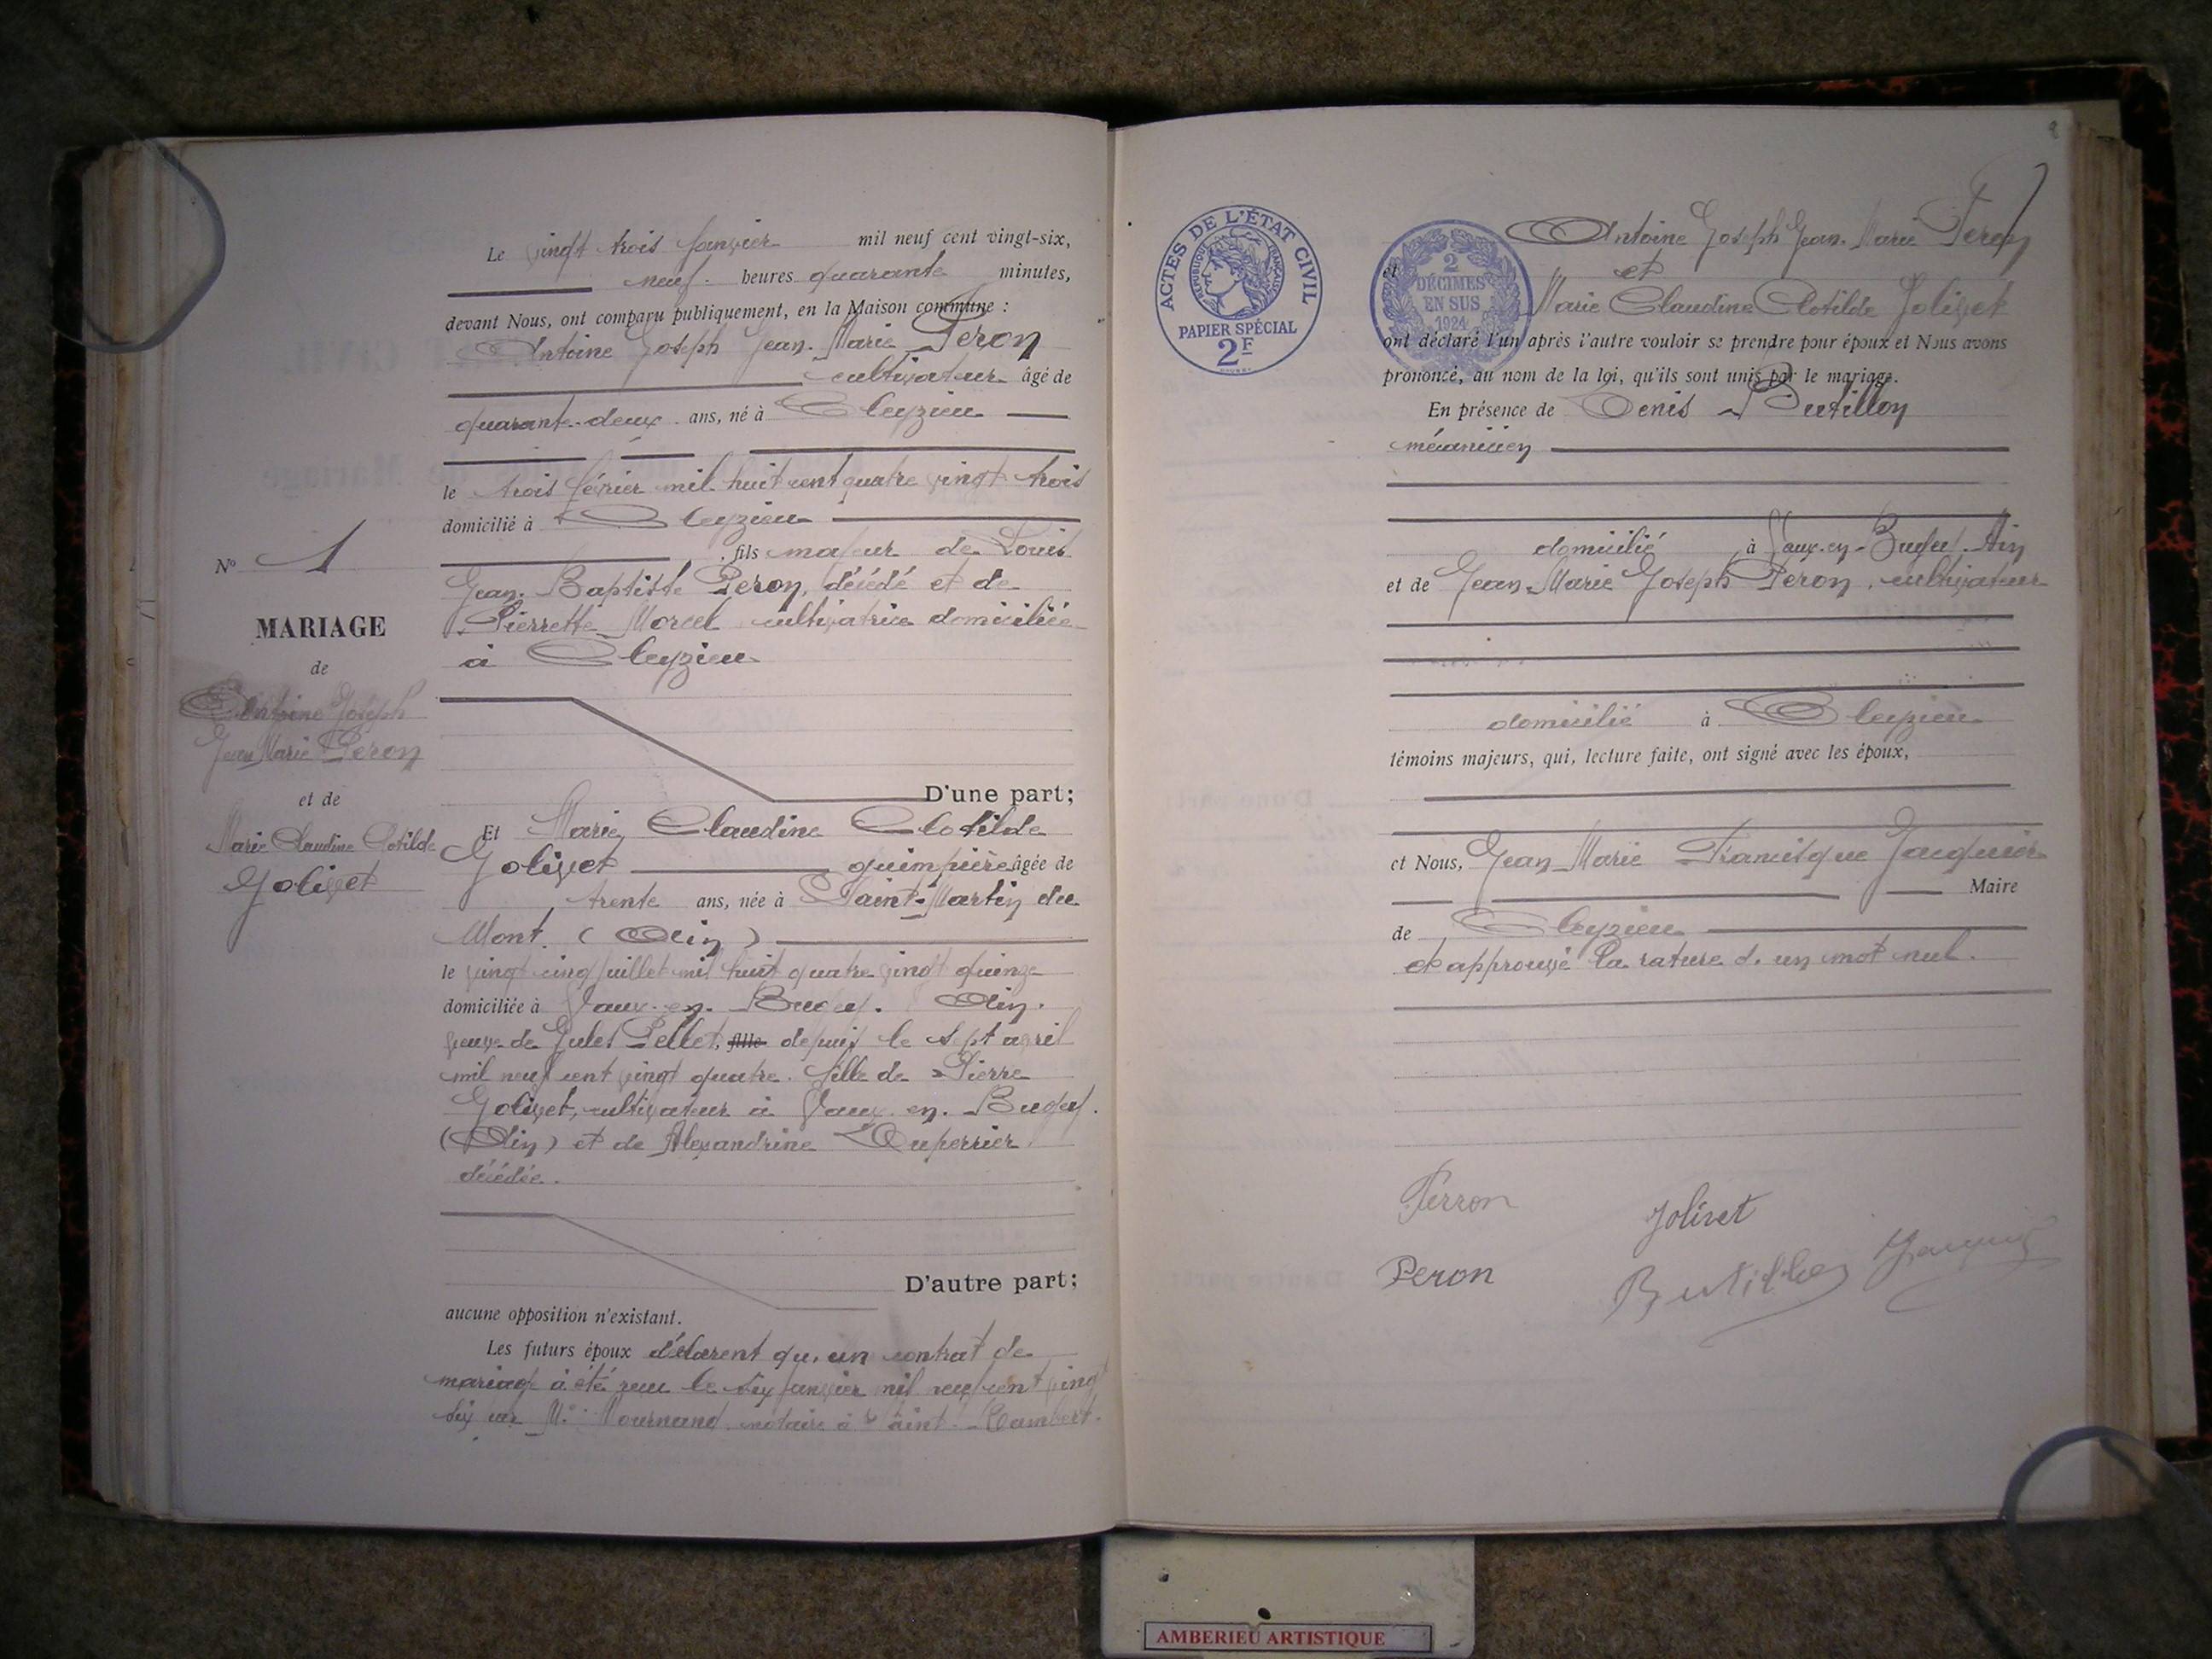 Le vingt trois Janvier mil neuf cent vingt-six,
neuf heures quarante minutes,
devant Nous, ont comparu publiquement, en la Maison commune :
Antoine Joseph Jean-Marie Peron
cultivateur âgé de
quarante-deux ans, né à Cleyzieu
le trois février mil huit cent quatre vingt trois
domicilié à Cleyzieu
fils majeur de Louis
Jean-Baptiste Peron, décédé et de
Pierrette Morel cultivatrice domiciliée
à Cleyzieu
D'une part;
N° 1
MARIAGE
de
Antoine Joseph
Jean Marie Peron
et de
Marie Claudine Clotilde
Jolivet
Et Marie Claudine Clotilde
Jolivet guimpière âgée de
trente ans, née à Saint-Martin du
Mont. (Ain)
le vingt cinq juillet mil huit quatre vingt quinze
domiciliée à Vaux-en-Bugey. Ain.
veuve de Jules Pellet, fille depuis le sept avril
mil neuf cent vingt quatre. fille de Pierre
Jolivet, cultivateur à Vaux-en-Bugey.
(Ain) et de Alexandrine Duperrier
décédée.
D'autre part;
aucune opposition n'existant.
Les futurs époux déclarent qu'un contrat de
mariage à été reçu le six Janvier mil neuf cent vingt
six par Me notaire à Saint-Rambert.
8
ACTES DE L'ÉTAT CIVIL
RÉPUBLIQUE FRANÇAISE
PAPIER SPÉCIAL
2F
2
DÉCIMES
EN SUS
1924
Antoine Joseph Jean-Marie Peron
et et
Marie Claudine Clotilde Jolivet
ont déclaré l'un après l'autre vouloir se prendre pour époux et Nous avons
prononcé, au nom de la loi, qu'ils sont unis par le mariage.
En présence de Denis Butillon
mécanicien
domicilié à Vaux-en-Bugey. Ain
et de Jean-Marie Joseph Péron, cultivateur
domicilié à Cleyzieu
témoins majeurs, qui, lecture faite, ont signé avec les époux,
et Nous, Jean Marie Francisque Jacquier
Maire
de Cleyzieu
et approuvé la rature d'un mot nul.
Perron
Jolivet
Peron
Butillon
AMBERIEU ARTISTIQUE